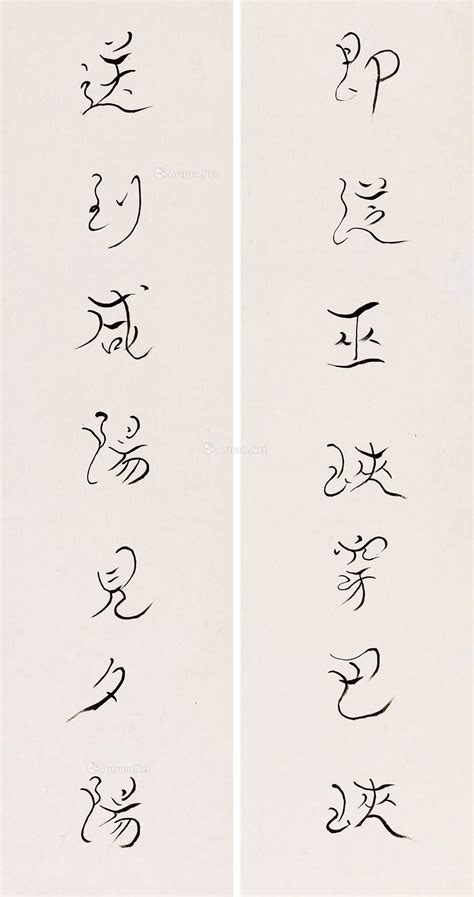 即從巫峽穿巴峽
送到咸陽見夕陽
Artron.Net
Artron.Net
Artron.Net